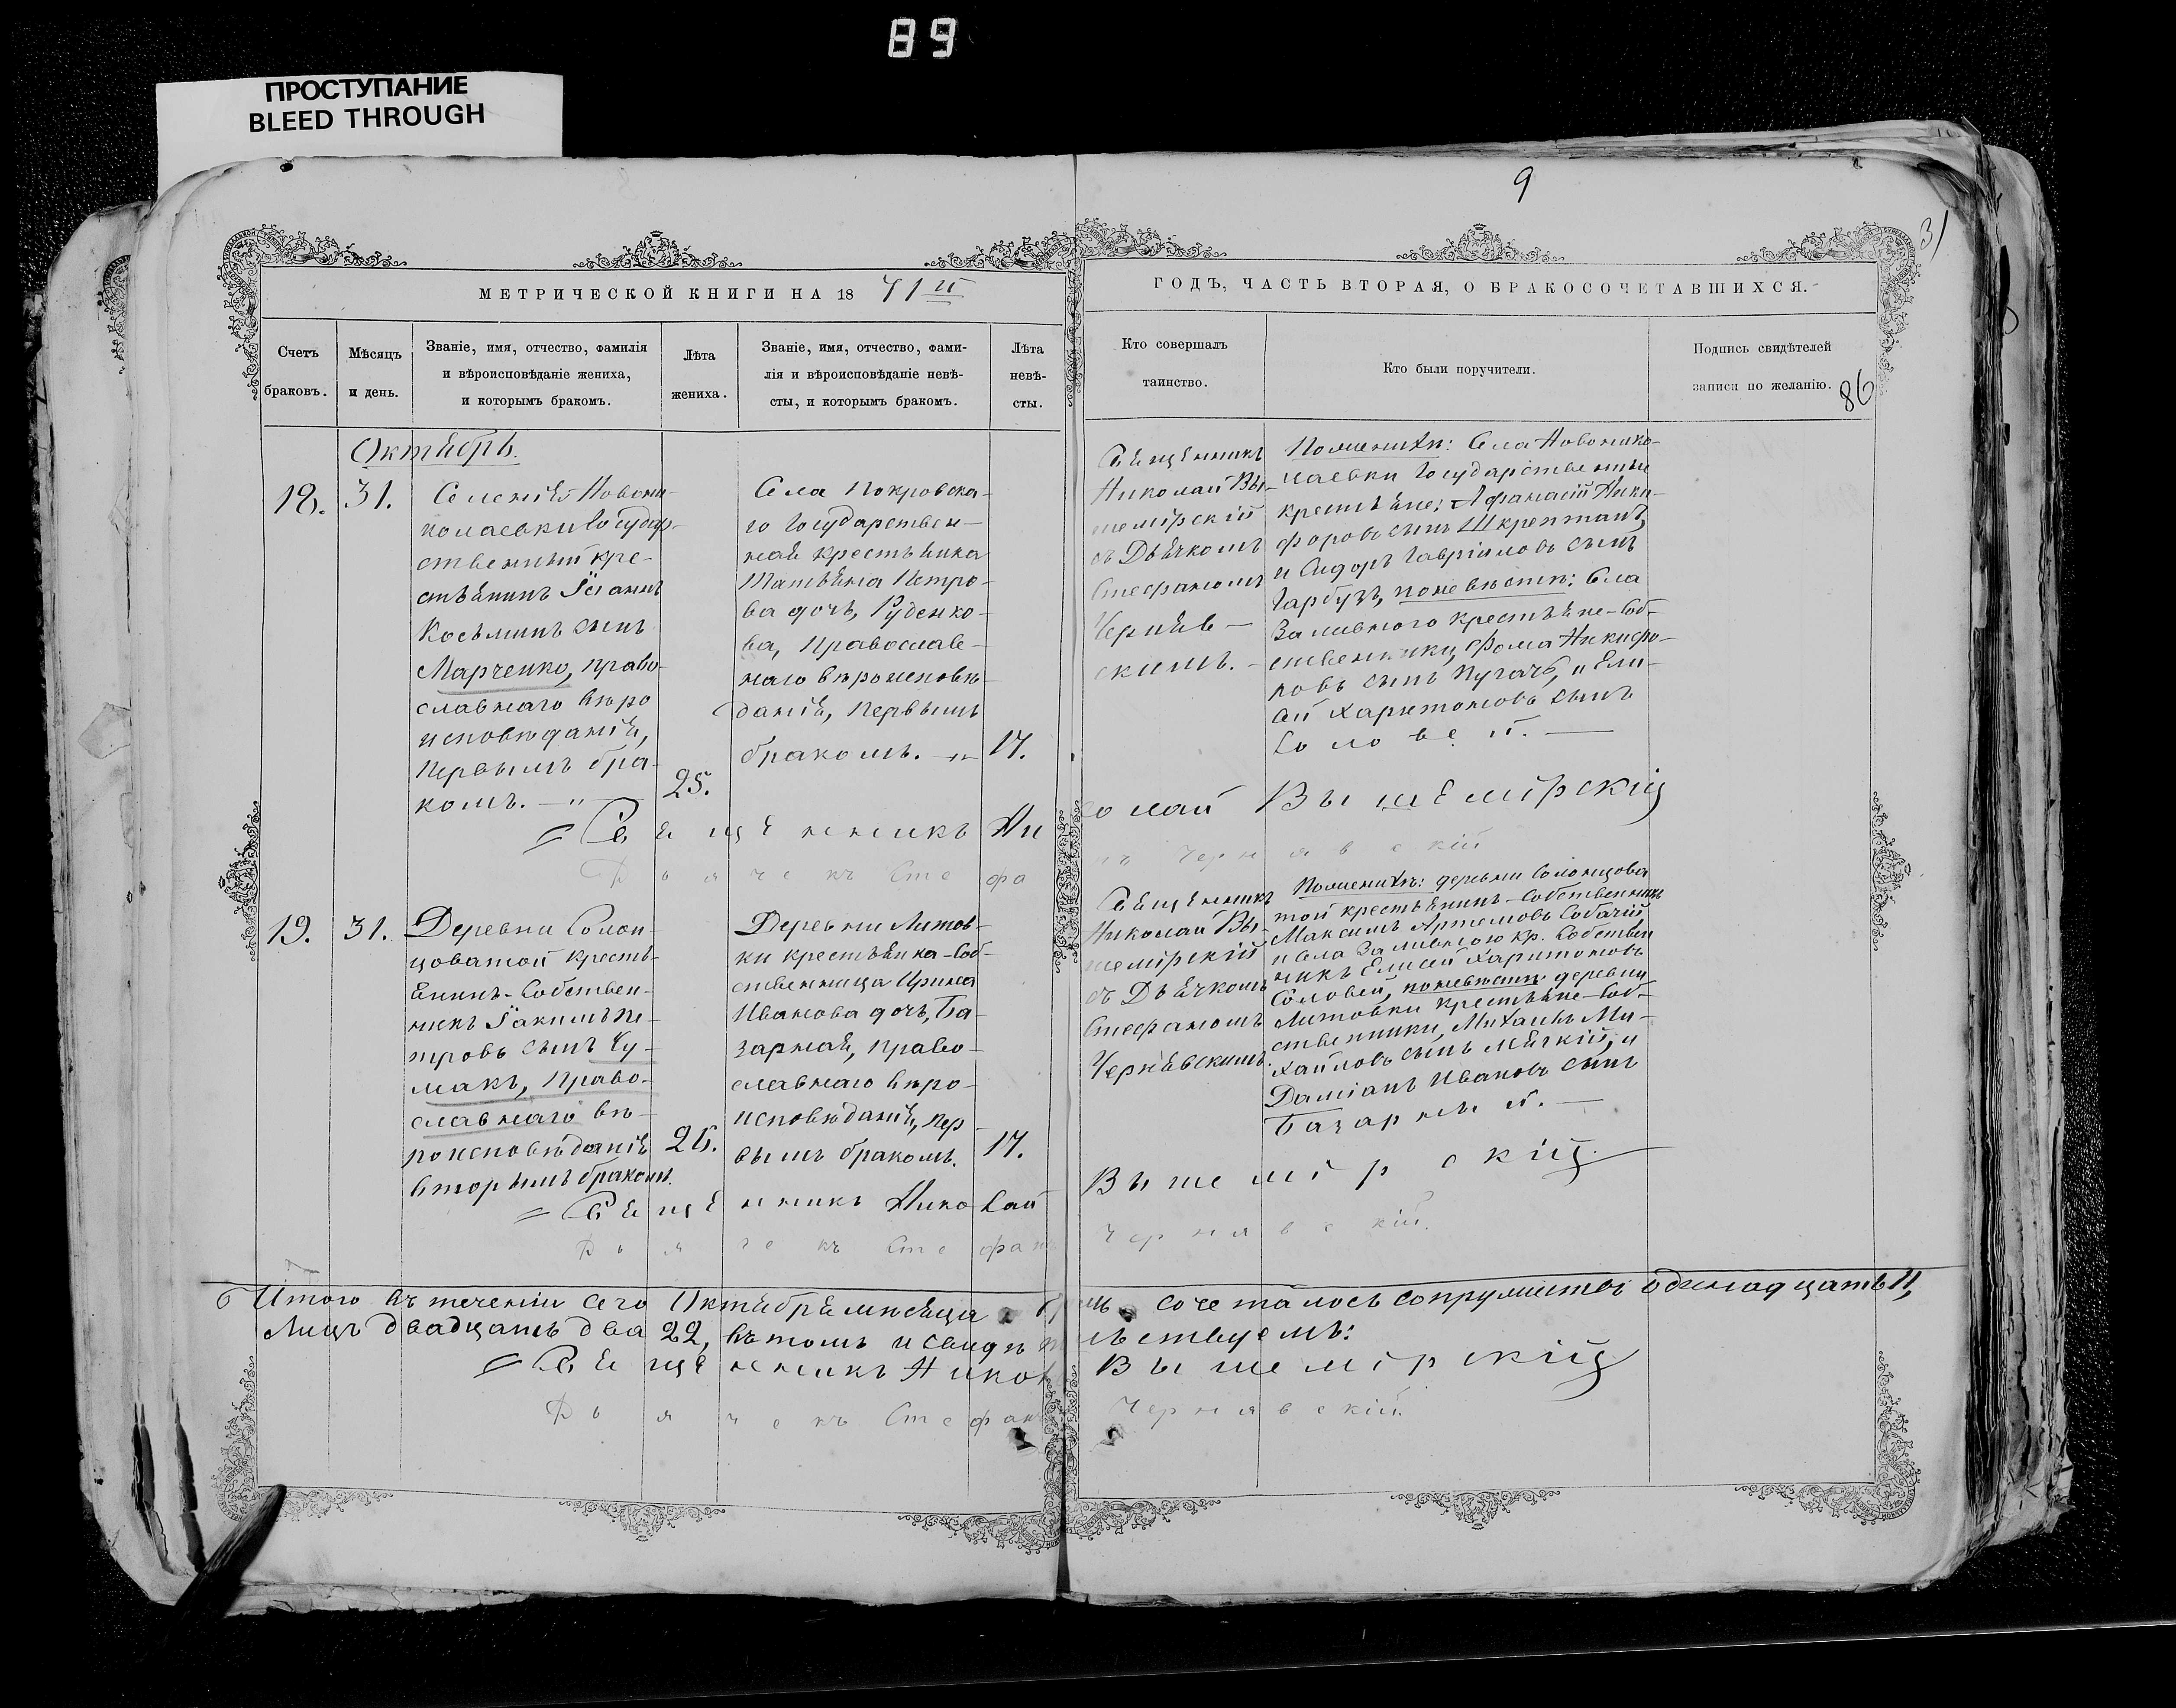 89
ПРОСТУПАНИЕ
BLEED THROUGH
9
31
МЕТРИЧЕСКОЙ КНИГИ НА 18 71й
ГОДЪ, ЧАСТЬ ВТОРАЯ, О БРАКОСОЧЕТАВШИХСЯ.
Счетъ
браковъ.
Мѣсяцъ
и день.
Званіе, имя, отчество, фамилія
и вѣроисповѣданіе жениха,
и которымъ бракомъ.
Лѣта
жениха.
Званіе, имя, отчество, фами-
лія и вѣроисповѣданіе невѣ-
сты, и которымъ бракомъ.
Лѣта
невѣ-
сты.
Кто совершалъ
таинство.
Кто были поручители.
Подпись свидѣтелей
записи по желанію.
86
Октябрь.
18.
31.
Селенія Новони-
колаевки Государ-
ственный кре-
стьянинъ Іоаннъ
Косьминъ сынъ
Марченко, право-
славнаго вѣро
исповѣданія,
Первымъ бра-
комъ. — " —
25.
Села Покровска-
го Государствен-
ная крестьянка
Татьяна Петро-
ва дочь, Руденко-
ва, Православ-
наго вѣроисповѣ-
данія, Первымъ
бракомъ. — " —
17.
Священникъ
Николай Вы-
шемірскій
съ Дьячкомъ
Стефаномъ
Черняв-
скимъ. —
По женихѣ: Села Новонико-
лаевки Государственные
крестьяне; Афанасій Ники-
форовъ сынъ Шкрептанъ,
и Сидоръ Гавріиловъ сынъ
Гарбузъ, по невѣстѣ: Села
Заливного крестьяне-Соб-
ственники, Фома Никифо-
ровъ сынъ Пугачъ, и Ели-
сей Харитоновъ сынъ
Соловей. —
Священникъ Николай Вышемірскій
Дьячекъ Стефанъ Чернявскій
19.
31.
Деревни Солон-
цоватой кресть-
янинъ-Собствен-
никъ Іакимъ Пе-
тровъ сынъ Чу-
макъ, Право-
славнаго вѣ-
роисповѣданія
вторымъ бракомъ.
26.
Деревни Литов-
ки крестьянка-Соб-
ственница Ирина
Иванова дочь, Ба-
зарная, Право-
славнаго вѣро-
исповѣданія, пер-
вымъ бракомъ.
17.
Священникъ
Николай Вы-
шемірскій
съ Дьячкомъ
Стефаномъ
Чернявскимъ.
По женихѣ: деревни Солонцова
той крестьянинъ-Собственникъ
Максимъ Артемовъ Собачій,
и Села Заливного кр. Собствен
никъ Елисей Харитоновъ
Соловей, по невѣстѣ: деревни
Литовки крестьяне-Соб-
ственники, Михаилъ Ми-
хайловъ сынъ Мягкій, и
Даміанъ Ивановъ сынъ
Базарный. —
Священникъ Николай Вышемірскій
Дьячекъ Стефанъ Чернявскій.
Итого въ теченіи сего Октября мѣсяца сочеталось супружествъ одинадцать 11,
Лицъ двадцать два 22, въ томъ и свидѣтельствуемъ:
Священникъ Николай Вышемірскій
Дьячекъ Стефанъ Чернявскій.